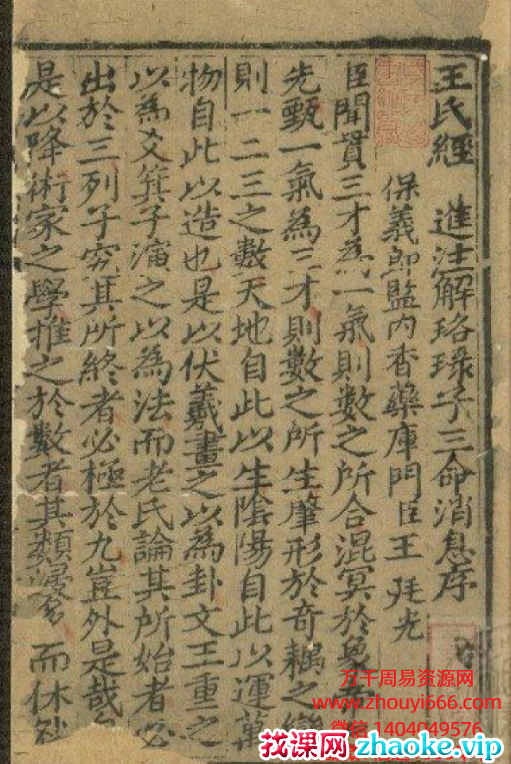 王氏經　進注解珞琭子三命消息序
保義郎監内香藥庫門臣王　廷光
臣聞貫三才為一氣則數之所合混冥於象
先甄一氣為三才則數之所生肇形於奇耦之
則一二三之數天地自此以生陰陽自此以運萬
物自此以造也是以伏羲畫之以為卦文王重之
以為爻箕子演之以為法而老氏論其所始者必
出於三列子究其所終者必極於九豈外是哉
是以降術家之學推之於數者其類寖多　而休
万千周易资源网
www.zhouyi666.com
微信1404049576
找课网zhaoke.vip